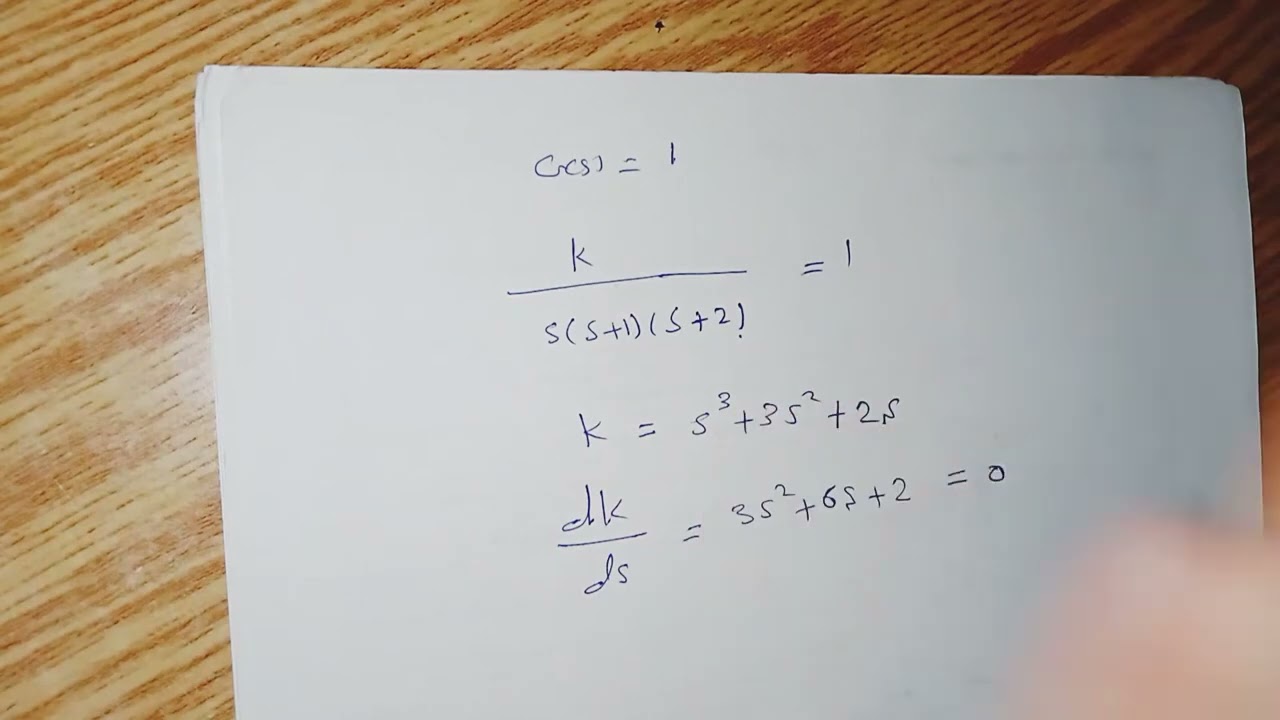 G(s) = 1
k
s(s+1)(s+2) = 1
k = s³+3s²+2s
dk
ds = 3s²+6s+2 = 0